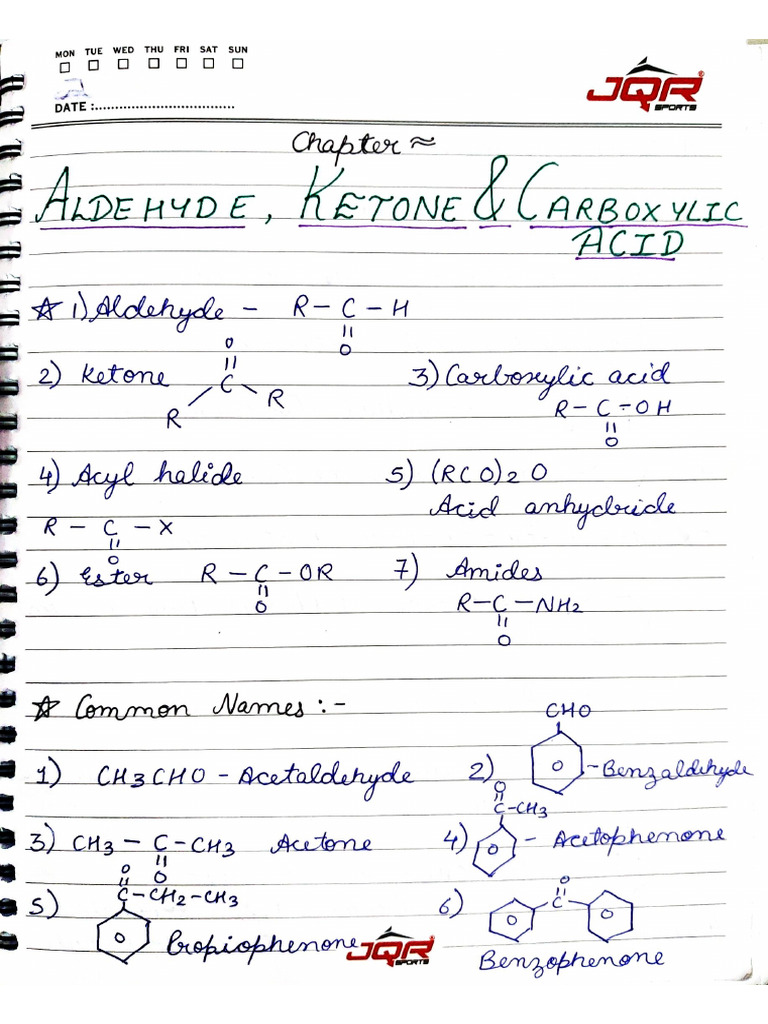 MON TUE WED THU FRI SAT SUN
DATE :
JQR
SPORTS
Chapter ≈
ALDEHYDE, KETONE & CARBOXYLIC
ACID
☆ 1) Aldehyde - R - C - H
O
2) Ketone
O
C
R R
3) Carboxylic acid
R - C - OH
O
4) Acyl halide
R - C - X
O
5) (RCO)2 O
Acid anhydride
6) Ester R - C - OR
O
7) Amides
R - C - NH2
O
☆ Common Names :-
1) CH3CHO - Acetaldehyde
2) CHO
- Benzaldehyde
3) CH3 - C - CH3 Acetone
O
4) O
C - CH3
- Acetophenone
5) O
C - CH2 - CH3
Propiophenone
6) O
C
Benzophenone
JQR
SPORTS